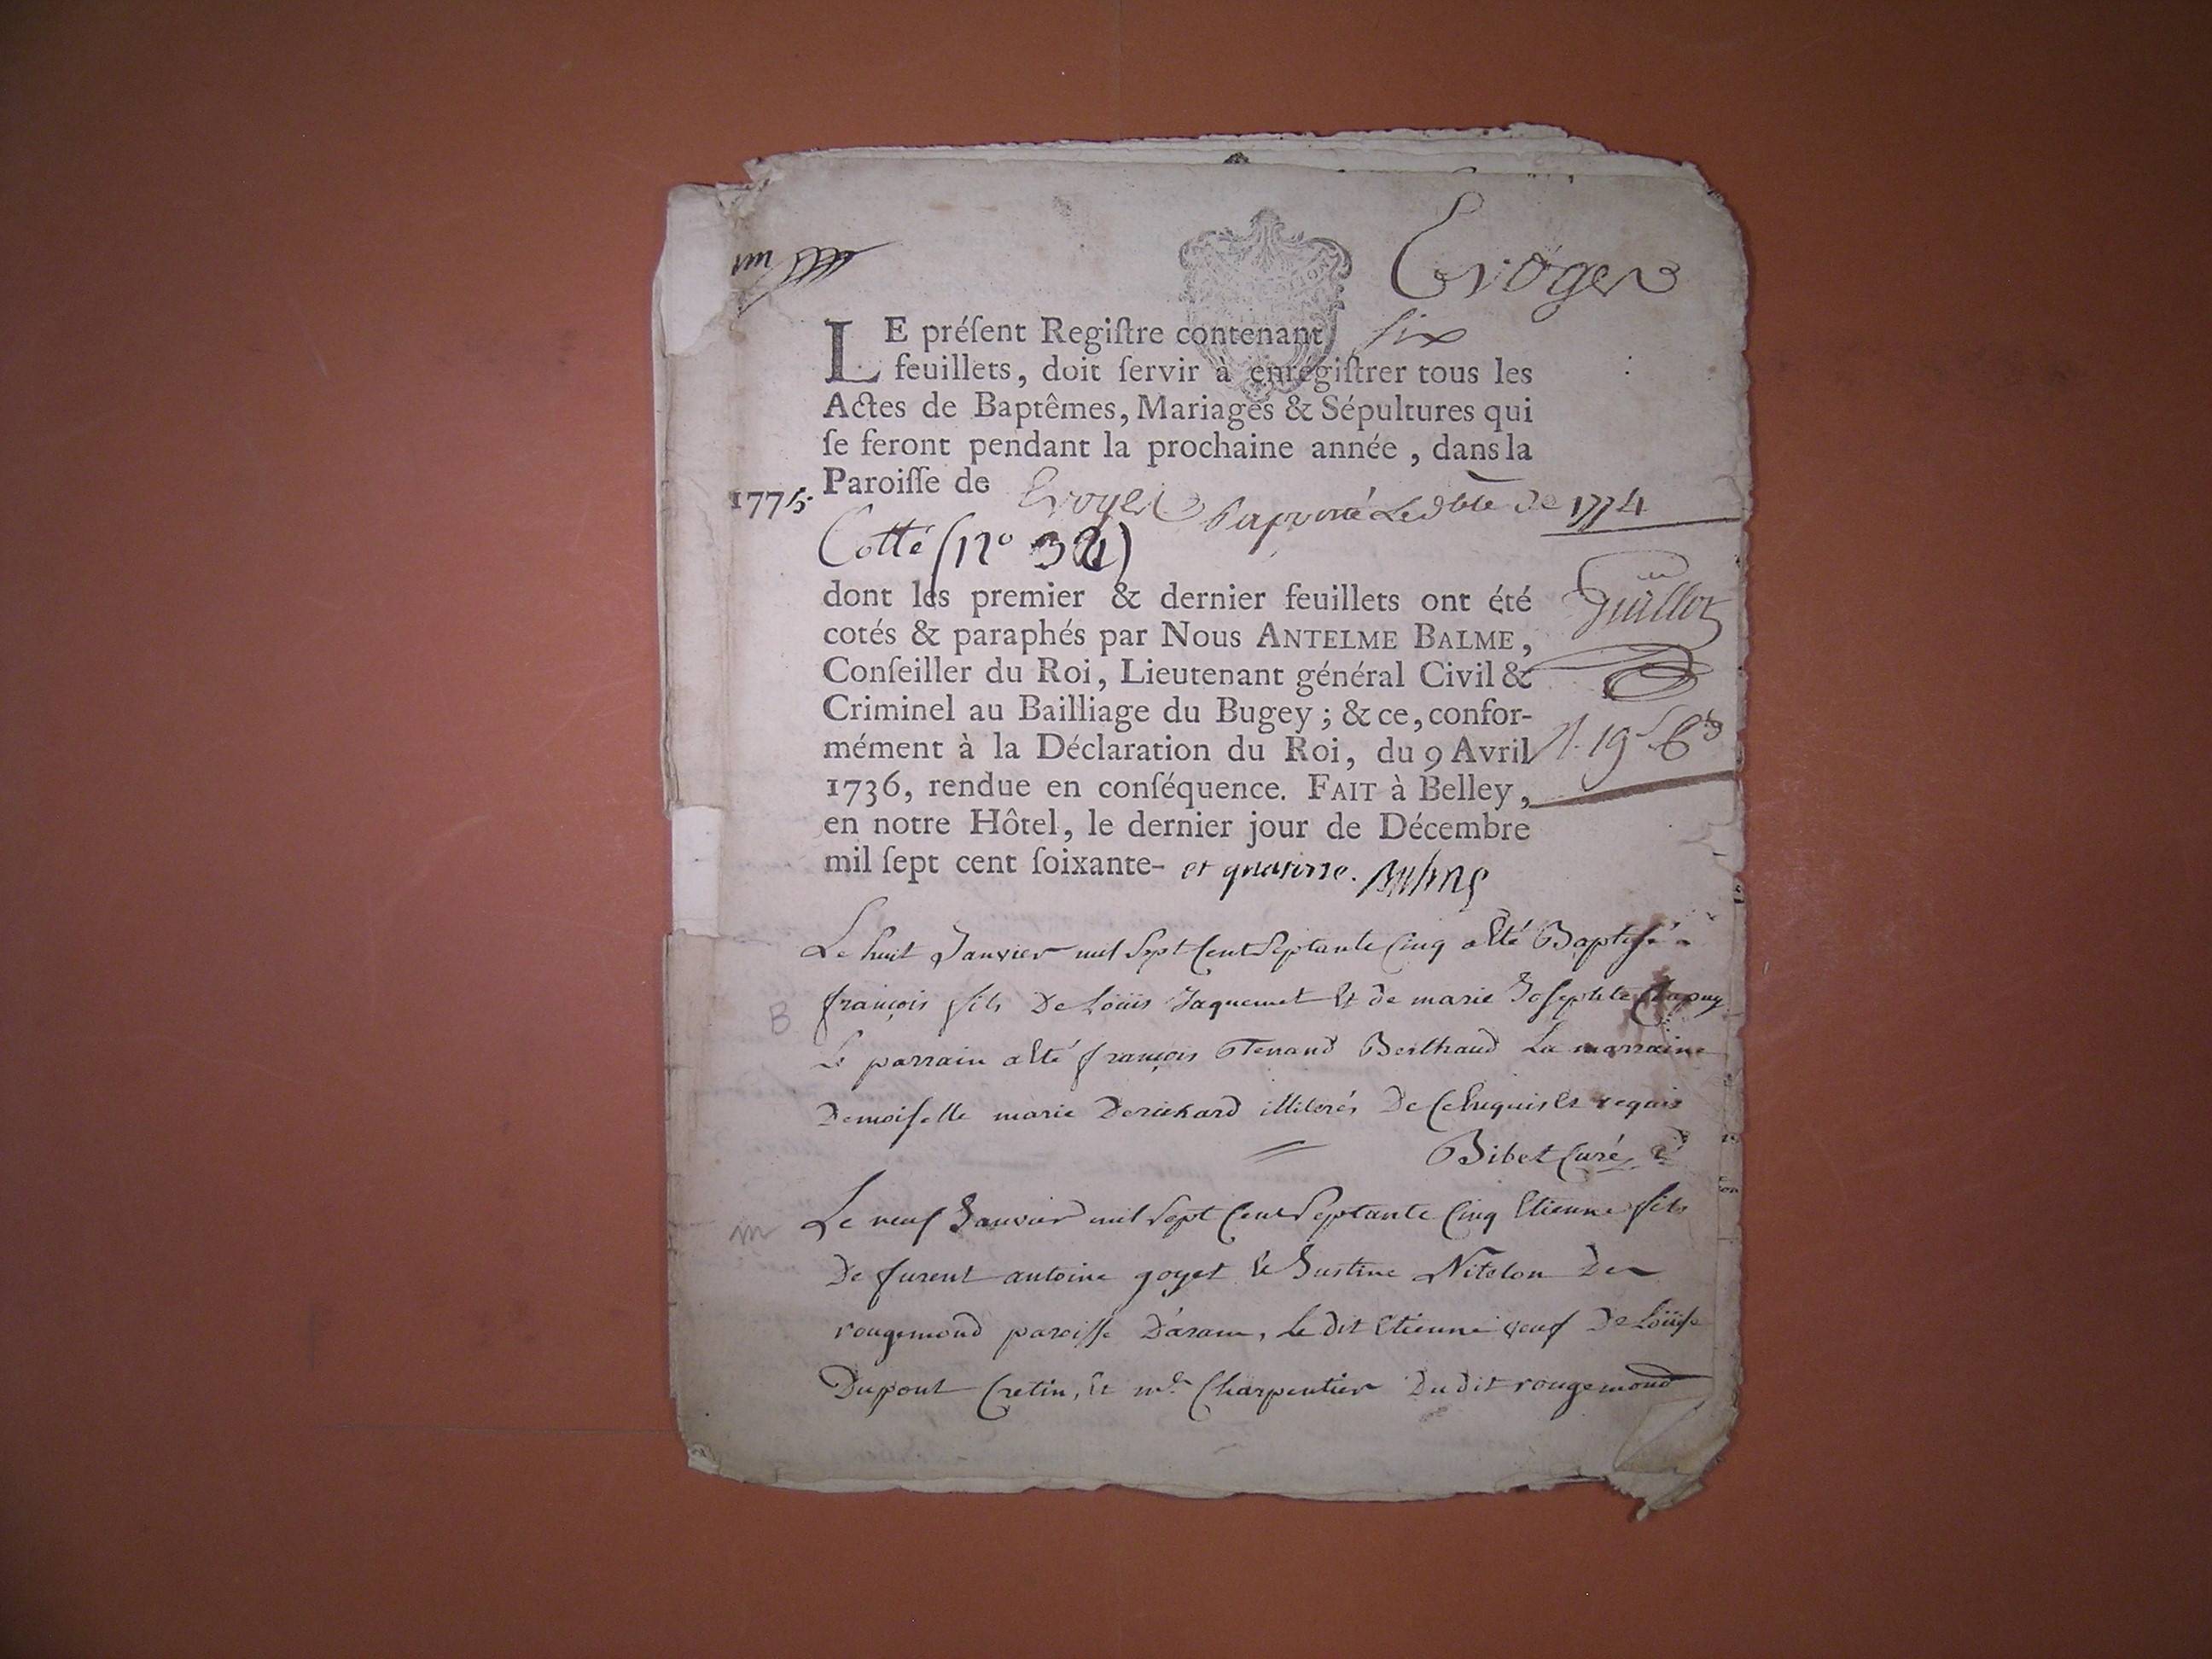 Evoges
LE préſent Regiſtre contenant six
feuillets, doit ſervir à enrégiſtrer tous les
Actes de Baptêmes, Mariages & Sépultures qui
ſe feront pendant la prochaine année, dans la
1775. Paroiſſe de Evoges 1774
Cotté (n°
Guillot
dont les premier & dernier feuillets ont été
cotés & paraphés par Nous ANTELME BALME,
Conſeiller du Roi, Lieutenant général Civil &
Criminel au Bailliage du Bugey; & ce, confor-
mément à la Déclaration du Roi, du 9 Avril
1736, rendue en conſéquence. FAIT à Belley,
en notre Hôtel, le dernier jour de Décembre
mil ſept cent ſoixante- et quatorze. Balme
Le huit Janvier mil Sept Cent Septante Cinq a Eté Baptisé
B
françois fils De Loüis Jaquemet Et de marie Josephte Chapuy
Le parrain a Eté françois Tenand Berthaud La marraine
Demoiselle marie Derichard illiterés De Ce Enquis Et requis
Bibet Curé
m
Le neuf Janvier mil Sept Cent Septante Cinq Etienne fils
De furent antoine goyet Et Justine Nitelon De
rougemond paroisse D'aran, Le dit Etienne veuf De Loüise
Dupont Cretin, Et m.e Charpentier Du dit rougemond